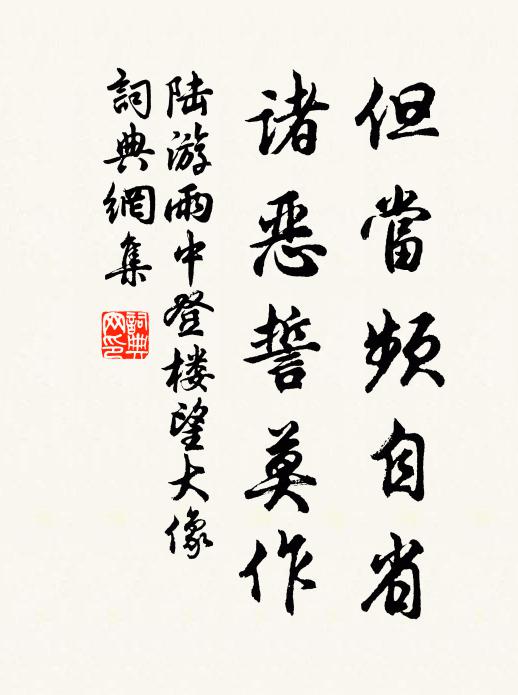 但當頻自省
诸惡誓莫作
陆游雨中登楼望大像
詞典網集
詞典网印